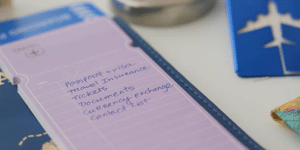 Passport + visa
Travel Insurance
Tickets
Documents
Currency exchange
Contact list